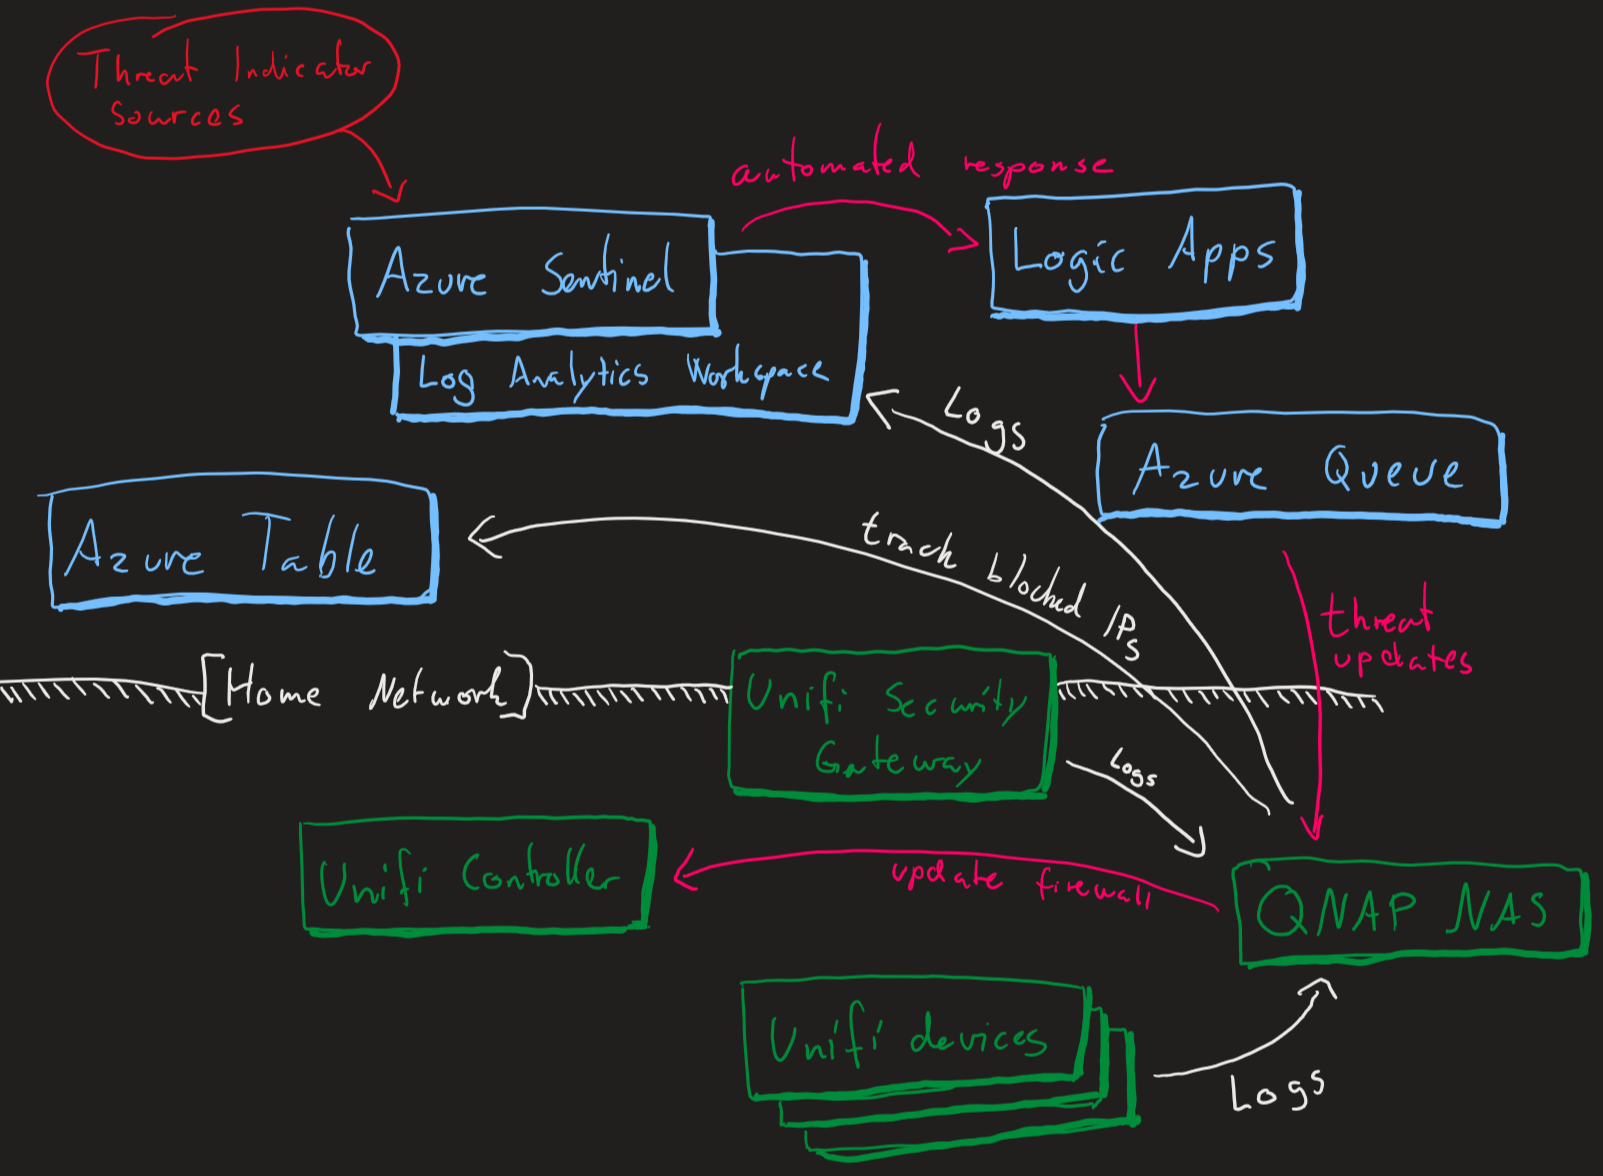 Threat Indicator
Sources
automated response
Azure Sentinel
Logic Apps
Log Analytics Workspace
Logs
Azure Queue
Azure Table
track blocked IPs
threat
updates
[Home Network]
Unifi Security
Gateway
Logs
Unifi Controller
update firewall
QNAP NAS
Unifi devices
Logs